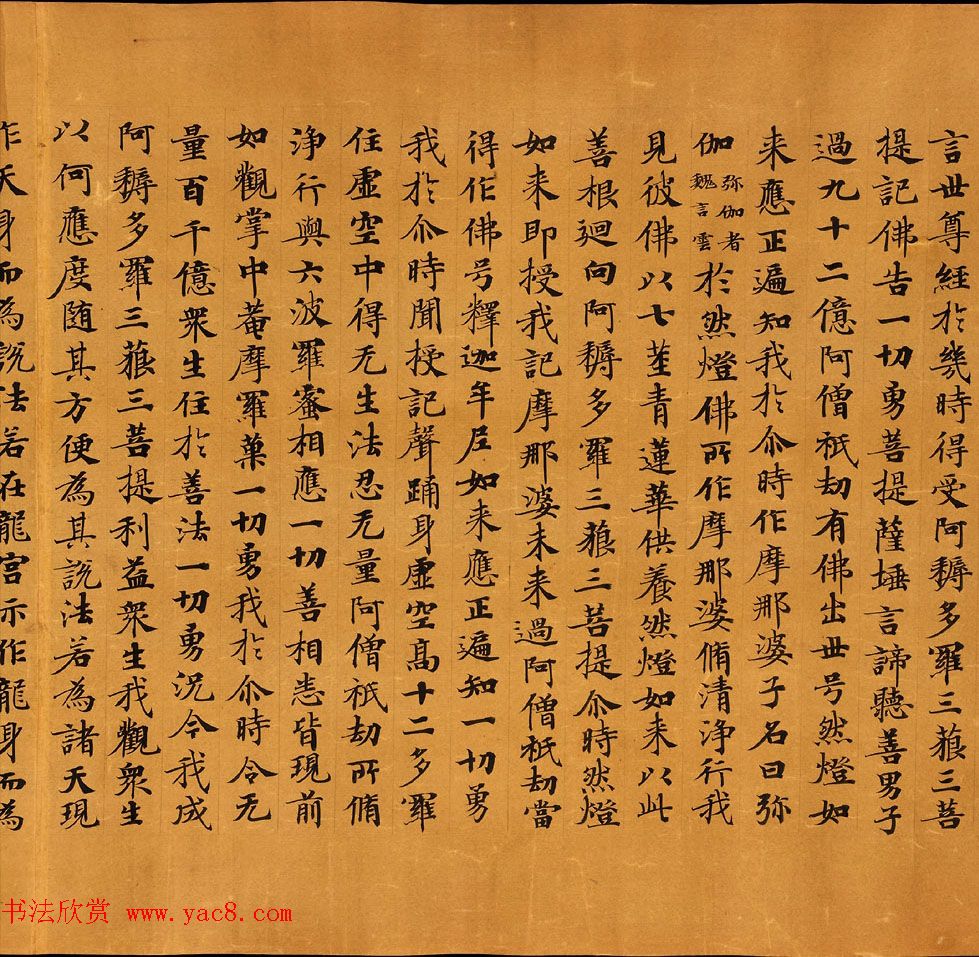 言世尊經於幾時得受阿耨多羅三藐三菩
提記佛告一切勇菩提薩埵言諦聽善男子
過九十二億阿僧祇劫有佛出世号然燈如
来應正遍知我於尒時作摩那婆子名曰弥
伽弥伽者魏言雲於然燈佛所作摩那婆脩清淨行我
見彼佛以七莖青蓮華供養然燈如来以此
善根迴向阿耨多羅三藐三菩提尒時然燈
如来即授我記摩那婆未来過阿僧祇劫當
得作佛号釋迦牟尼如来應正遍知一切勇
我於尒時聞授記聲踊身虛空高十二多羅
住虛空中得无生法忍无量阿僧祇劫所脩
淨行與六波羅蜜相應一切善相悉皆現前
如觀掌中菴摩羅菓一切勇我於尒時令无
量百千億衆生住於善法一切勇況今我成
阿耨多羅三藐三菩提利益衆生我觀衆生
以何應度随其方便為其說法若為諸天現
作天身而為說法若在龍宫示作龍身而為
书法欣赏 www.yac8.com